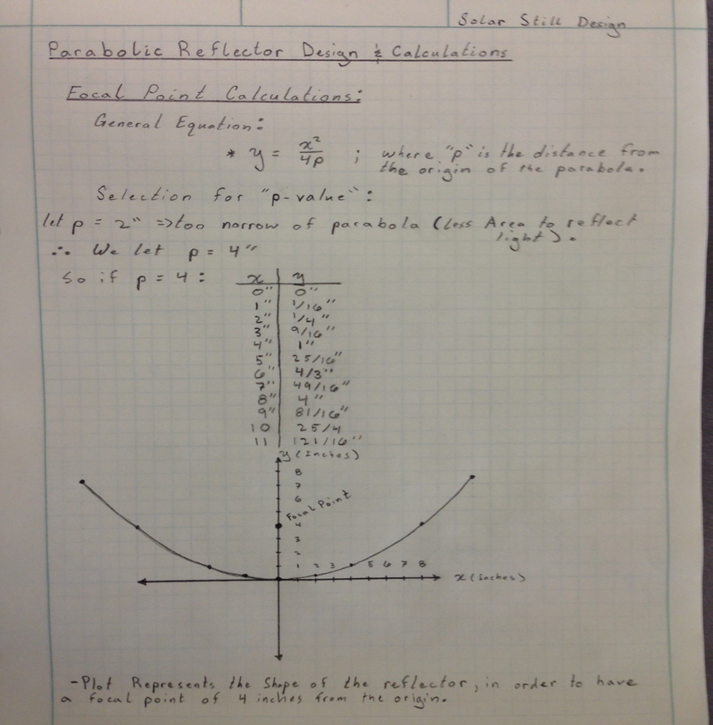 Solar Still Design
Parabolic Reflector Design & Calculations
Focal Point Calculations:
General Equation:
* y = x²/4p ; where "p" is the distance from
the origin of the parabola.
Selection for "p-value":
let p = 2" => too narrow of parabola (less Area to reflect
light).
∴ We let p = 4"
So if p = 4:
x y
0" 0"
1" 1/16"
2" 1/4"
3" 9/16"
4" 1"
5" 25/16"
6" 4/3"
7" 49/16"
8" 4"
9" 81/16"
10 25/4
11 121/16"
y (inches)
8
7
6
Focal Point
4
3
2
1
1 2 3 5 6 7 8
x (inches)
-Plot Represents the Shape of the reflector, in order to have
a focal point of 4 inches from the origin.